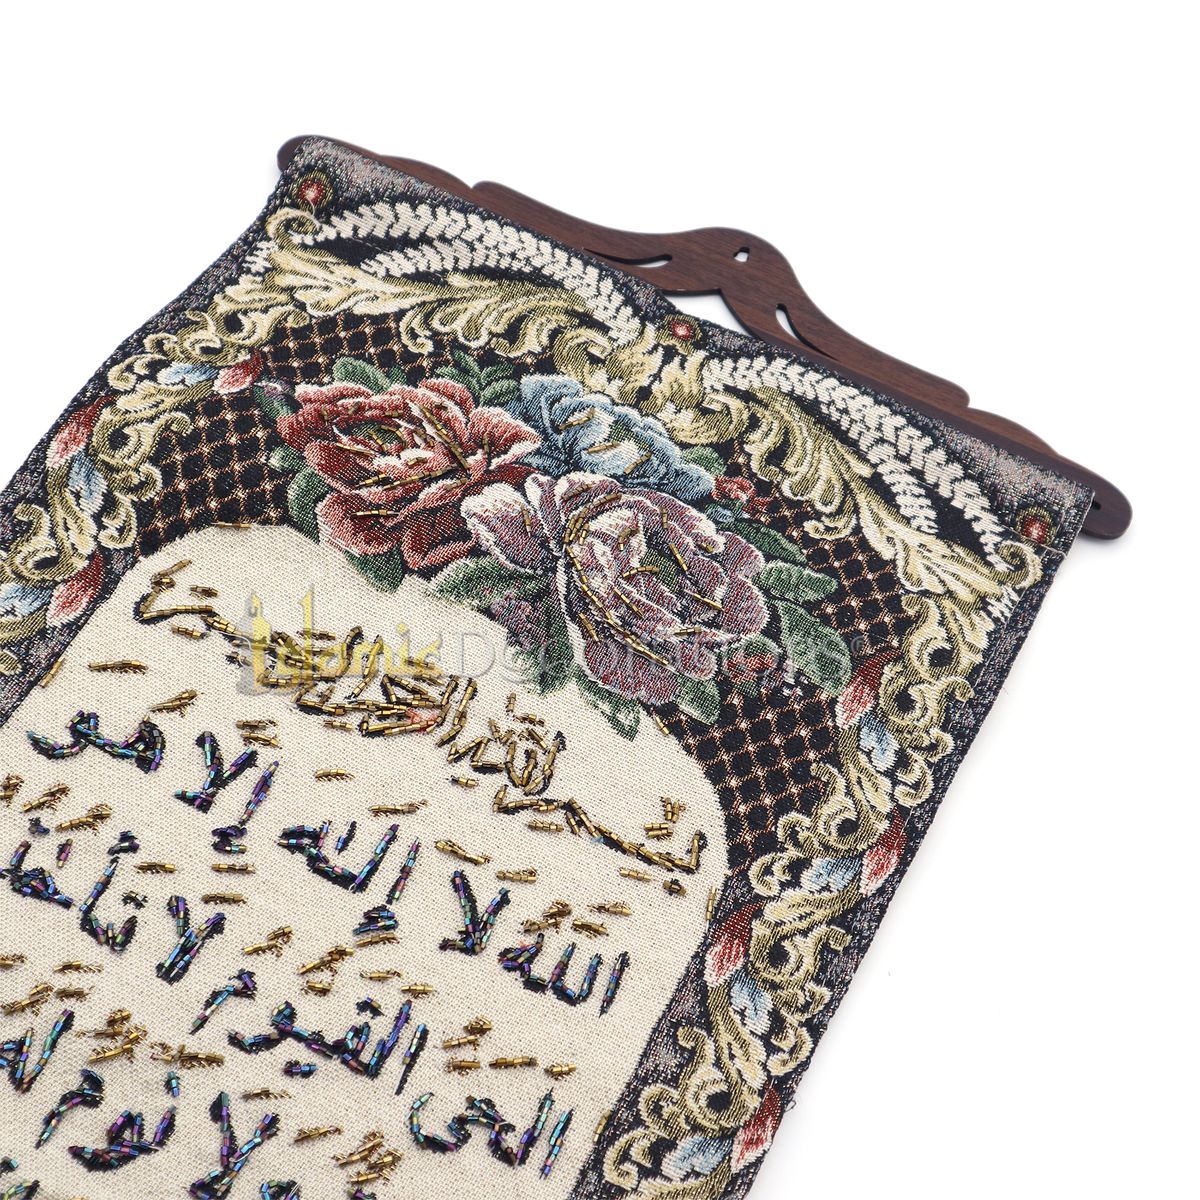 بسم الله الرحمن الرحيم
الله لا إله إلا هو
الحي القيوم لا تأخذه
ولا نوم له
Islamic Decorations